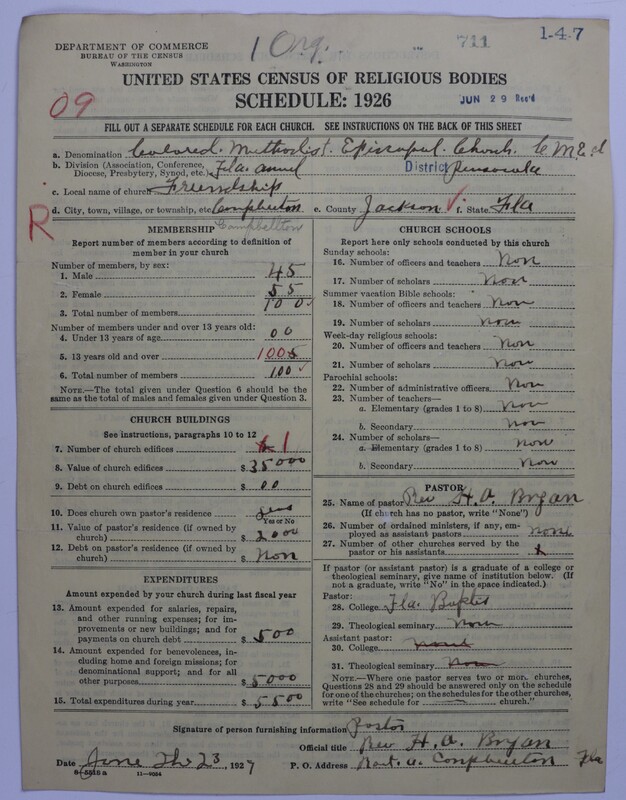 1 Org. 711 1-4-7
DEPARTMENT OF COMMERCE
BUREAU OF THE CENSUS
WASHINGTON
UNITED STATES CENSUS OF RELIGIOUS BODIES
09 SCHEDULE: 1926 JUN 29 Rec'd
FILL OUT A SEPARATE SCHEDULE FOR EACH CHURCH. SEE INSTRUCTIONS ON THE BACK OF THIS SHEET
a. Denomination Colored Methodist Episcopal Church C M E
b. Division (Association, Conference, Diocese, Presbytery, Synod, etc.) Fla. District Pensacola
c. Local name of church Friendship
R d. City, town, village, or township, etc. e. County Jackson ✓ f. State Fla
Campbellton
MEMBERSHIP
Report number of members according to definition of member in your church
Number of members, by sex:
1. Male 45
2. Female 55
3. Total number of members 100
Number of members under and over 13 years old:
4. Under 13 years of age 00
5. 13 years old and over 100
6. Total number of members 100 ✓
NOTE.—The total given under Question 6 should be the same as the total of males and females given under Question 3.
CHURCH BUILDINGS
See instructions, paragraphs 10 to 12
7. Number of church edifices 1
8. Value of church edifices $ 35000
9. Debt on church edifices $ 00
10. Does church own pastor's residence
Yes or No
11. Value of pastor's residence (if owned by church) $ 2000
12. Debt on pastor's residence (if owned by church) $ Non
EXPENDITURES
Amount expended by your church during last fiscal year
13. Amount expended for salaries, repairs, and other running expenses; for improvements or new buildings; and for payments on church debt $ 500
14. Amount expended for benevolences, including home and foreign missions; for denominational support; and for all other purposes $ 5000
15. Total expenditures during year $ 5500
CHURCH SCHOOLS
Report here only schools conducted by this church
Sunday schools:
16. Number of officers and teachers Non
17. Number of scholars Non
Summer vacation Bible schools:
18. Number of officers and teachers Non
19. Number of scholars Non
Week-day religious schools:
20. Number of officers and teachers Non
21. Number of scholars Non
Parochial schools:
22. Number of administrative officers Non
23. Number of teachers—
a. Elementary (grades 1 to 8) Non
b. Secondary Non
24. Number of scholars—
a. Elementary (grades 1 to 8) Non
b. Secondary Non
PASTOR
25. Name of pastor Rev H. A. Bryan
(If church has no pastor, write "None")
26. Number of ordained ministers, if any, employed as assistant pastors none
27. Number of other churches served by the pastor or his assistants
If pastor (or assistant pastor) is a graduate of a college or theological seminary, give name of institution below. (If not a graduate, write "No" in the space indicated.)
Pastor:
28. College Fla. Baptis
29. Theological seminary Non
Assistant pastor:
30. College
31. Theological seminary Non
NOTE.—Where one pastor serves two or more churches, Questions 28 and 29 should be answered only on the schedule for one of the churches; on the schedules for the other churches, write "See schedule for ---------- church."
Signature of person furnishing information Pastor
Official title Rev H. A. Bryan
Date June 23, 1927 P. O. Address Fla
8—5515 a 11—9054